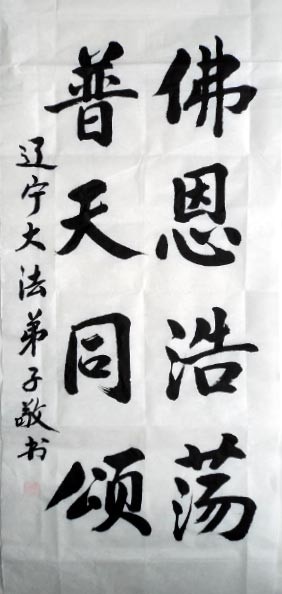 佛恩浩荡
普天同颂
辽宁大法弟子敬书